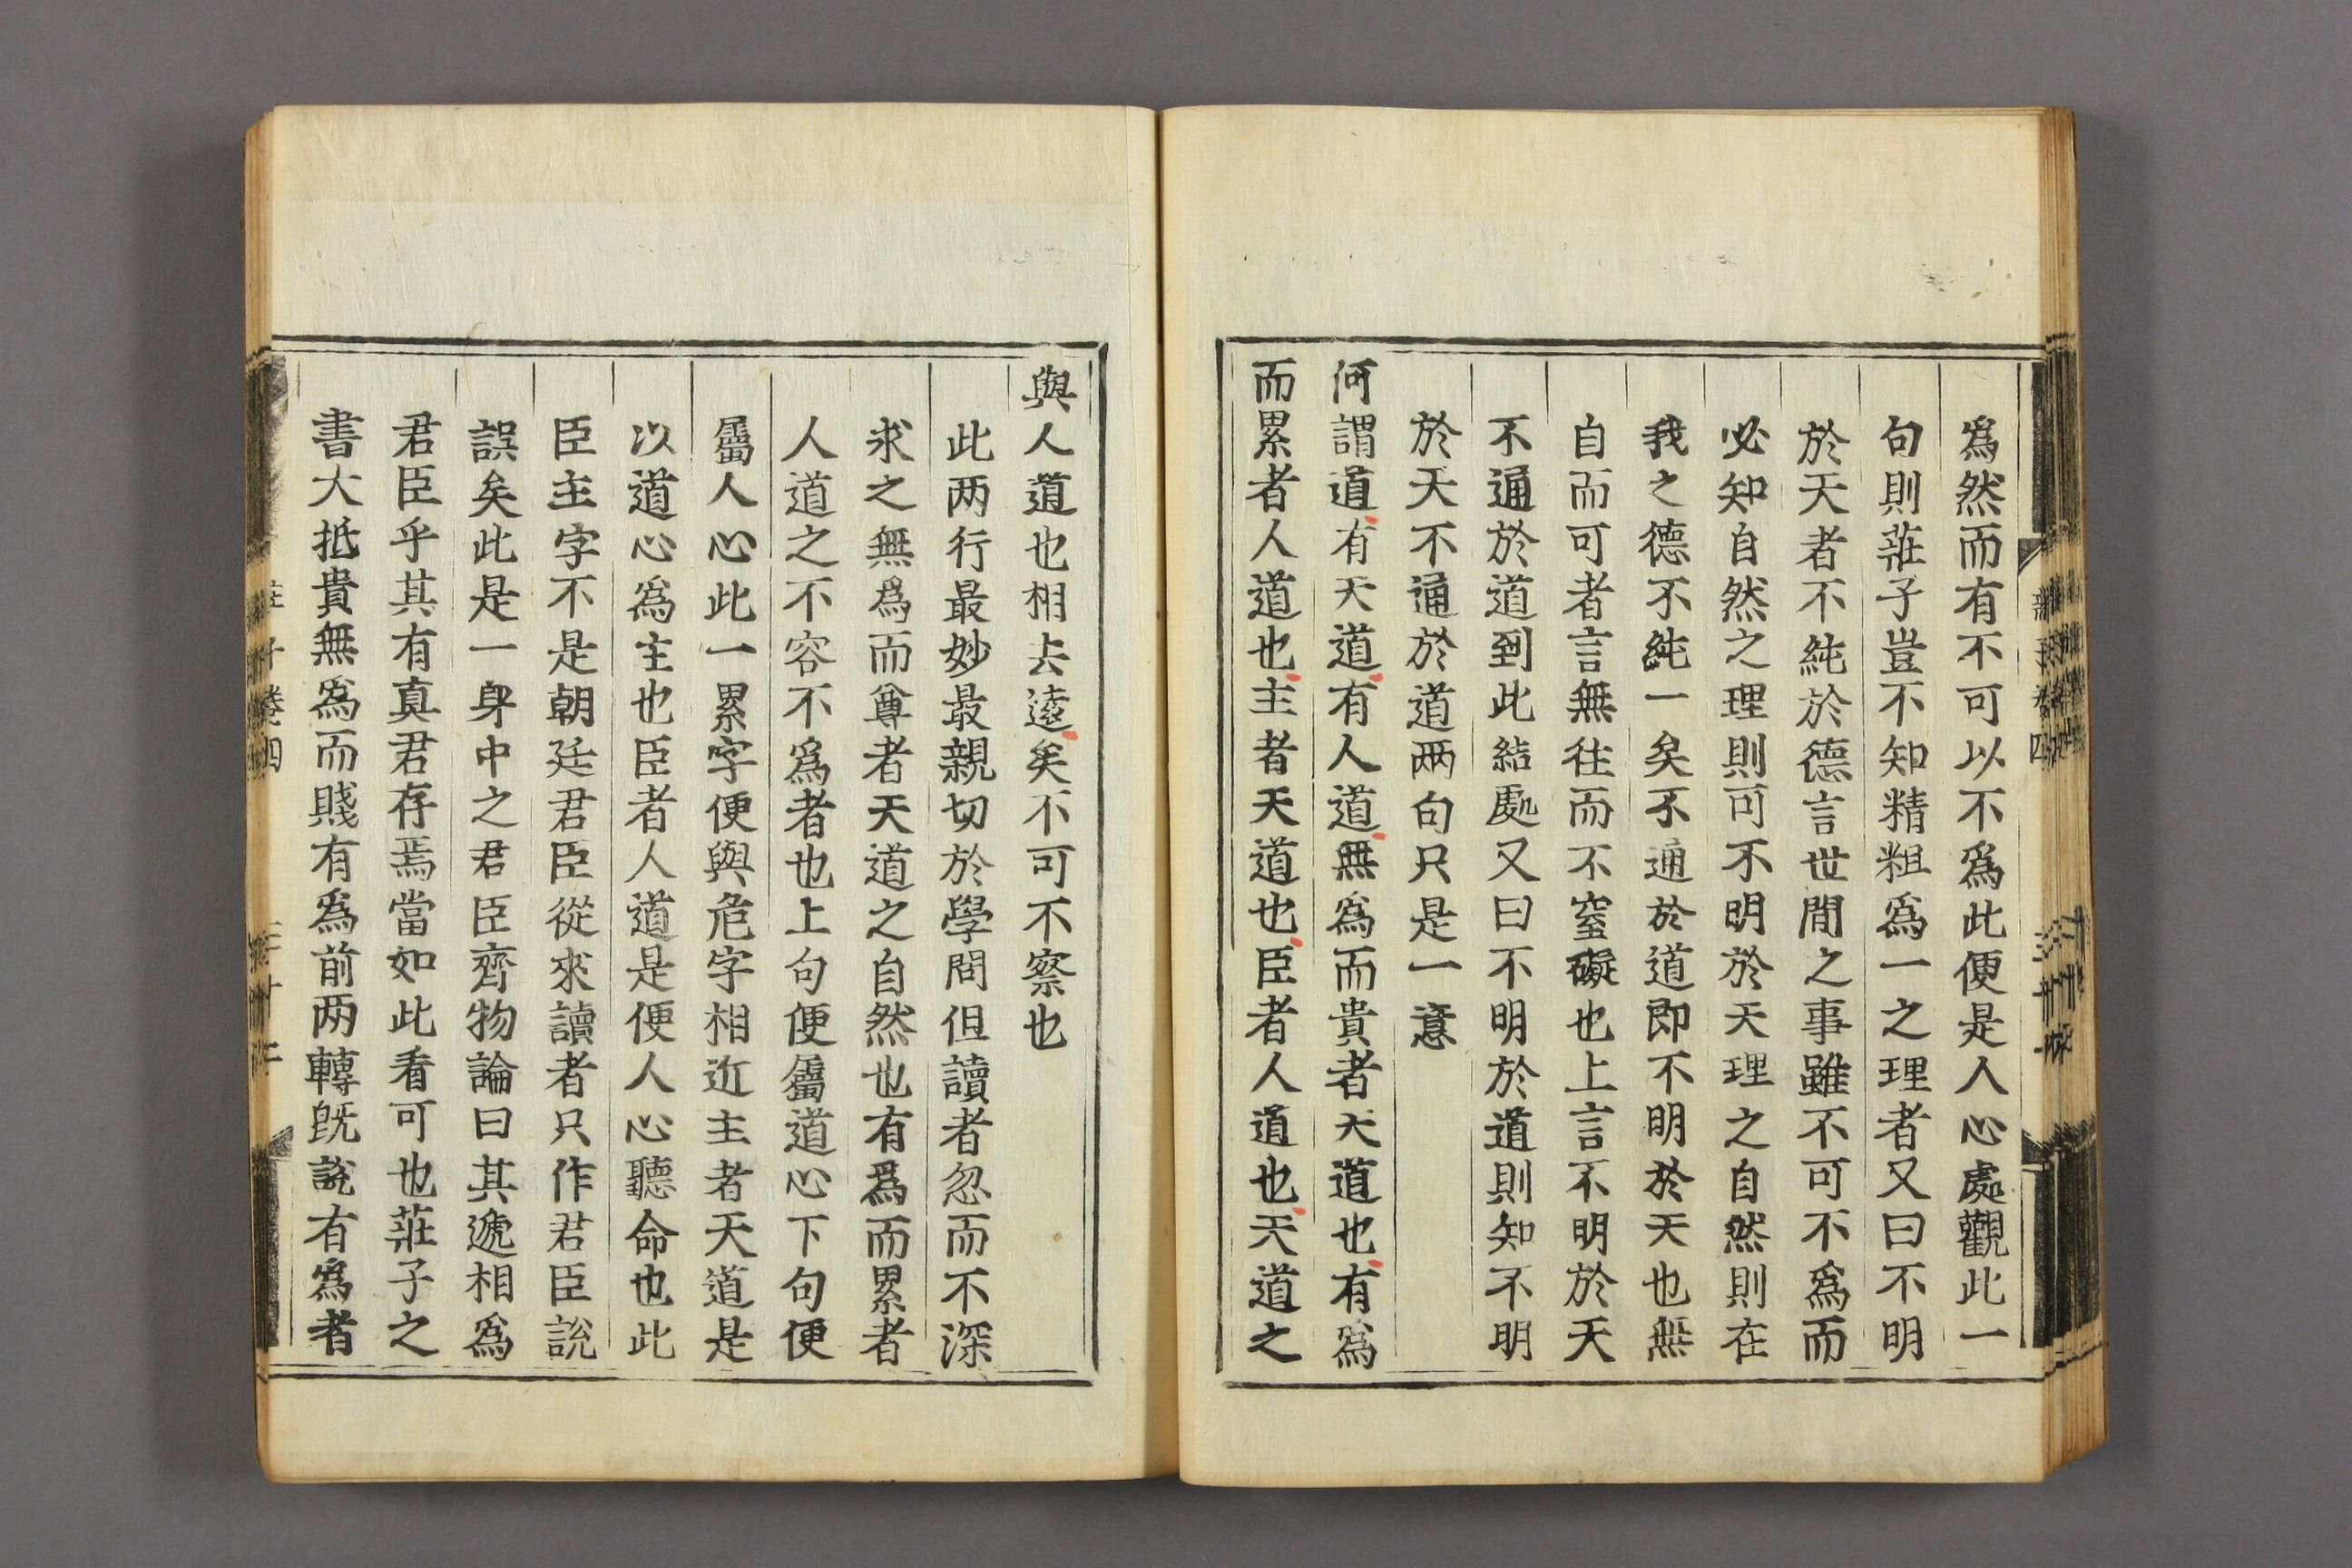 爲然而有不可以不爲此便是人心處觀此一
句則莊子豈不知精粗爲一之理者又曰不明
於天者不純於德言世間之事雖不可不爲而
必知自然之理則可不明於天理之自然則在
我之德不純一矣不通於道即不明於天也無
自而可者言無往而不窒礙也上言不明於天
不通於道到此結處又曰不明於道則知不明
於天不通於道两句只是一意
何謂道有天道有人道無爲而貴者天道也有爲
而累者人道也主者天道也臣者人道也天道之
與人道也相去遠矣不可不察也
此两行最妙最親切於學問但讀者忽而不深
求之無爲而尊者天道之自然也有爲而累者
人道之不容不爲者也上句便屬道心下句便
屬人心此一累字便與危字相近主者天道是
以道心爲主也臣者人道是便人心聽命也此
臣主字不是朝廷君臣從來讀者只作君臣說
誤矣此是一身中之君臣齊物論曰其遞相爲
君臣乎其有真君存焉當如此看可也莊子之
書大抵貴無爲而賤有爲前两轉旣說有爲者
莊子卷四